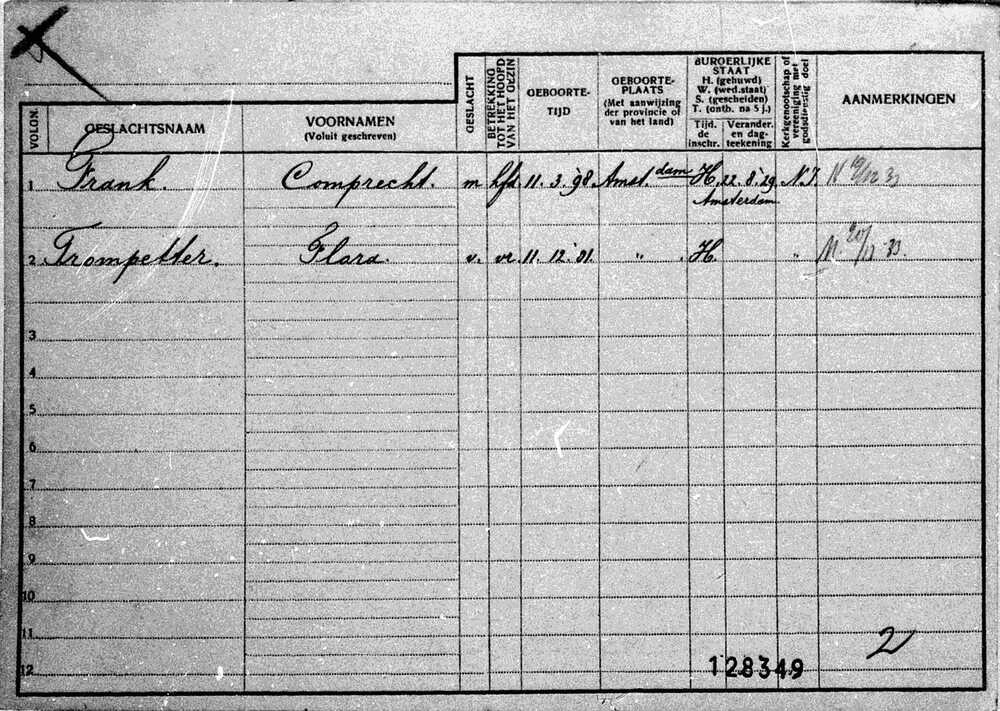 VOLGN.
GESLACHTSNAAM
VOORNAMEN
(Voluit geschreven)
GESLACHT
BETREKKING
TOT HET HOOFD
VAN HET GEZIN
GEBOORTE-
TIJD
GEBOORTE-
PLAATS
(Met aanwijzing
der provincie of
van het land)
BURGERLIJKE
STAAT
H. (gehuwd)
W. (wed.staat)
S. (gescheiden)
T. (ontb. na 5 j.)
Tijd.
de
inschr.
Verander.
en dag-
teekening
Kerkgenootschap of
vereeniging met
godsdienstig doel
AANMERKINGEN
1 Frank. Comprecht. m hfd. 11. 3. 98 Amst.dam H. 22. 8. 29 N.I.
Amsterdam
2 Trompetter. Flora. v. vr. 11. 12. 01. " H. "
3
4
5
6
7
8
9
10
11
12
128349
2